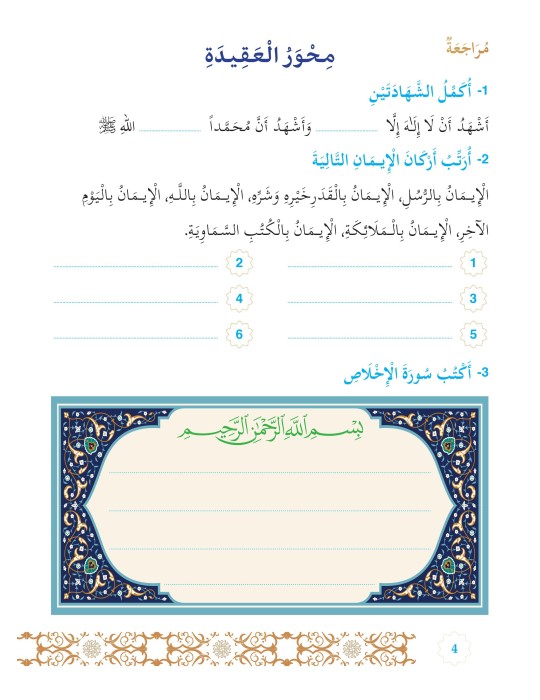 مُرَاجَعَةٌ
مِحْوَرُ الْعَقِيدَةِ
1- أُكَمِّلُ الشَّهَادَتَيْنِ
أَشْهَدُ أَنْ لَا إِلَهَ إِلَّا ............ وَأَشْهَدُ أَنَّ مُحَمَّداً ............ اللهِ ﷺ
2- أُرَتِّبُ أَرْكَانَ الْإِيمَانِ التَّالِيَةَ
الْإِيمَانُ بِالرُّسُلِ، الْإِيمَانُ بِالْقَدَرِ خَيْرِهِ وَشَرِّهِ، الْإِيمَانُ بِاللَّهِ، الْإِيمَانُ بِالْيَوْمِ
الْآخِرِ، الْإِيمَانُ بِالْمَلَائِكَةِ، الْإِيمَانُ بِالْكُتُبِ السَّمَاوِيَةِ.
1 ............ 2 ............
3 ............ 4 ............
5 ............ 6 ............
3- أَكْتُبُ سُورَةَ الْإِخْلَاصِ
بِسْمِ اللَّهِ الرَّحْمَٰنِ الرَّحِيمِ
4